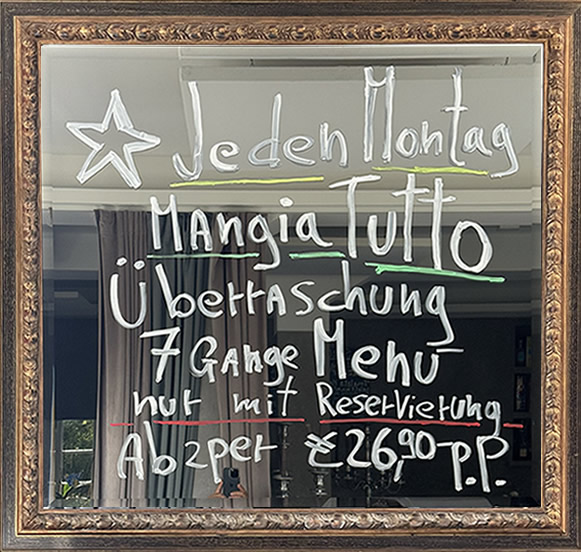 Jeden Montag
Mangia Tutto
Überraschung
7 Gange Menu
nur mit Reservierung
Ab 2 per € 26,90 p.P.